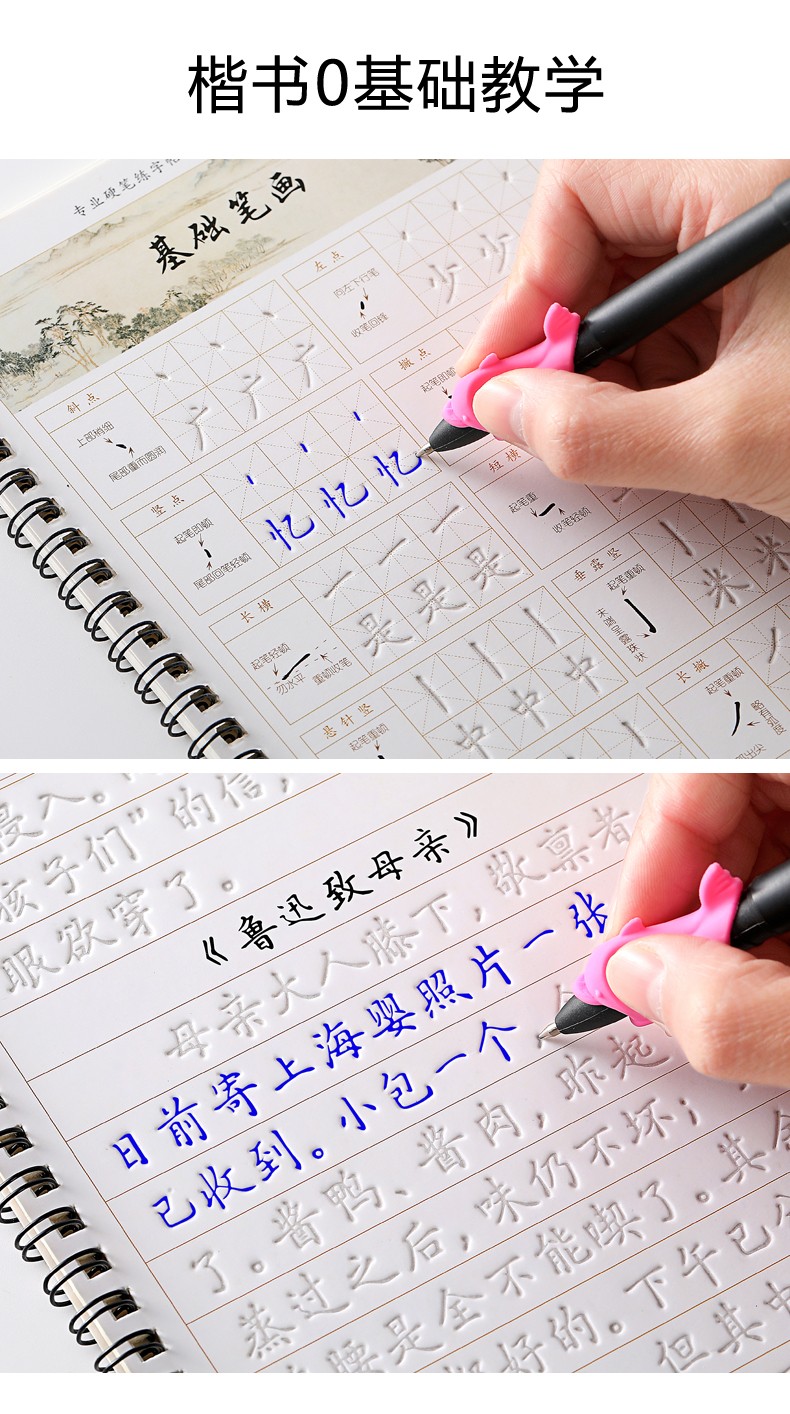 楷书0基础教学
专业硬笔练字帖
基础笔画
左点
向左下行笔
收笔回锋
少 少
斜点
上部稍细
尾部重而圆润
广 广 广
撇点
起笔即顿
竖点
起笔即顿
尾部回笔轻顿
忆 忆 忆
短横
起笔重
收笔轻顿
长横
起笔轻顿
勿水平
重顿收笔
是 是 是
垂露竖
起笔重顿
末端呈露珠状
米 米
悬针竖
起笔重顿
中 中 中
长撇
起笔重顿
略有弧度
侵入。
孩子们”的信,
眼欲穿了。
《鲁迅致母亲》
母亲大人膝下,敬禀者
日前寄上海婴照片一张
已收到。小包一个
了。酱鸭、酱肉,昨起
蒸过之后,味仍不坏;
腰是全不能喫了。其余
好的。下午已分
但其中